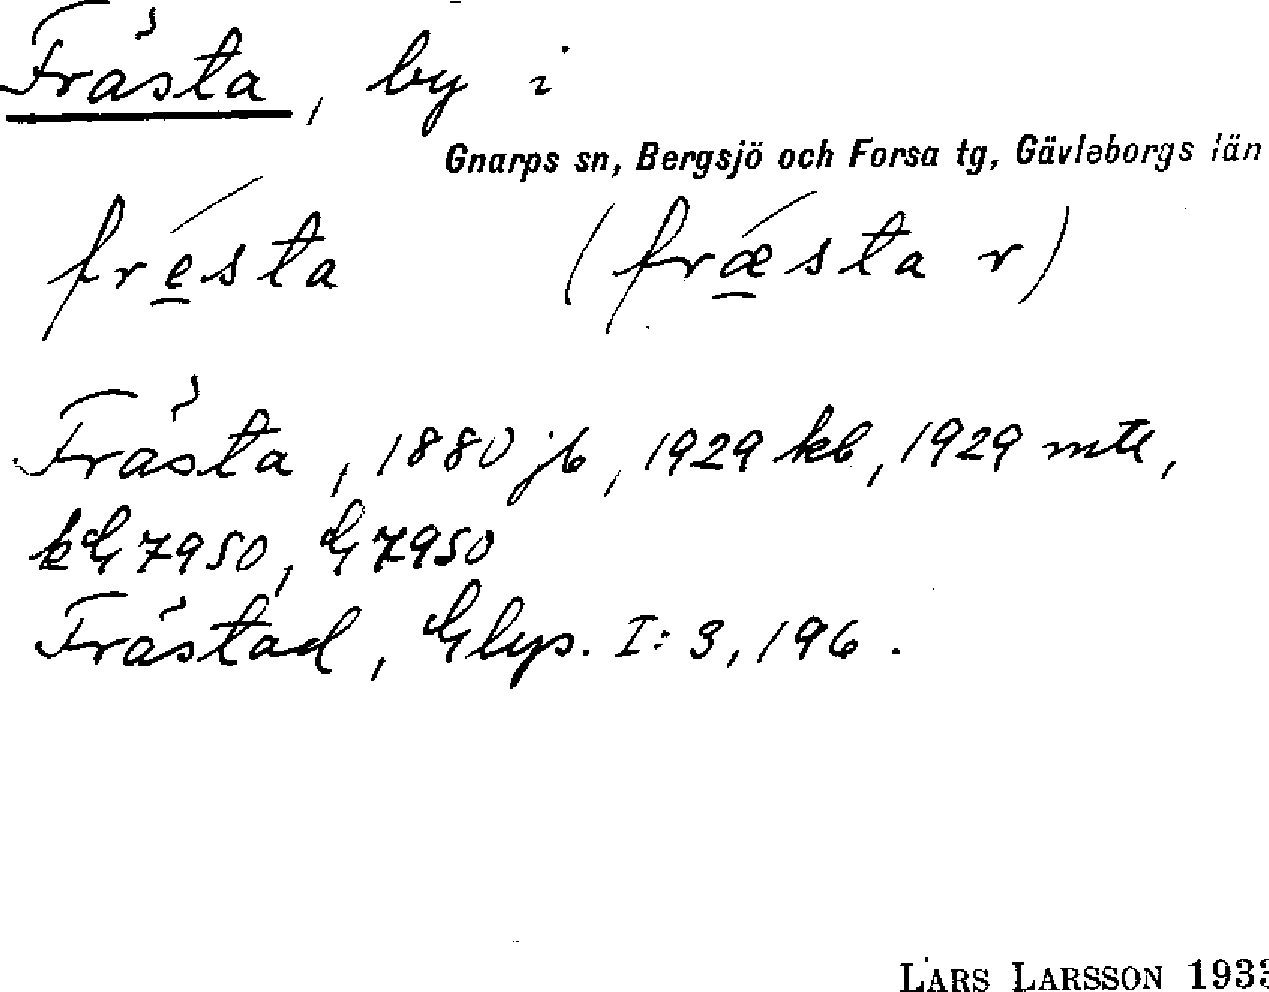 Frästa, by i
Gnarps sn, Bergsjö och Forsa tg, Gävleborgs län
frésta (frǽsta r)
Frästa, 1880 jb, 1929 kb, 1929 mtl,
kG 7950, G 7950
Frästad, Glys. I: 3, 196.
LARS LARSSON 1933